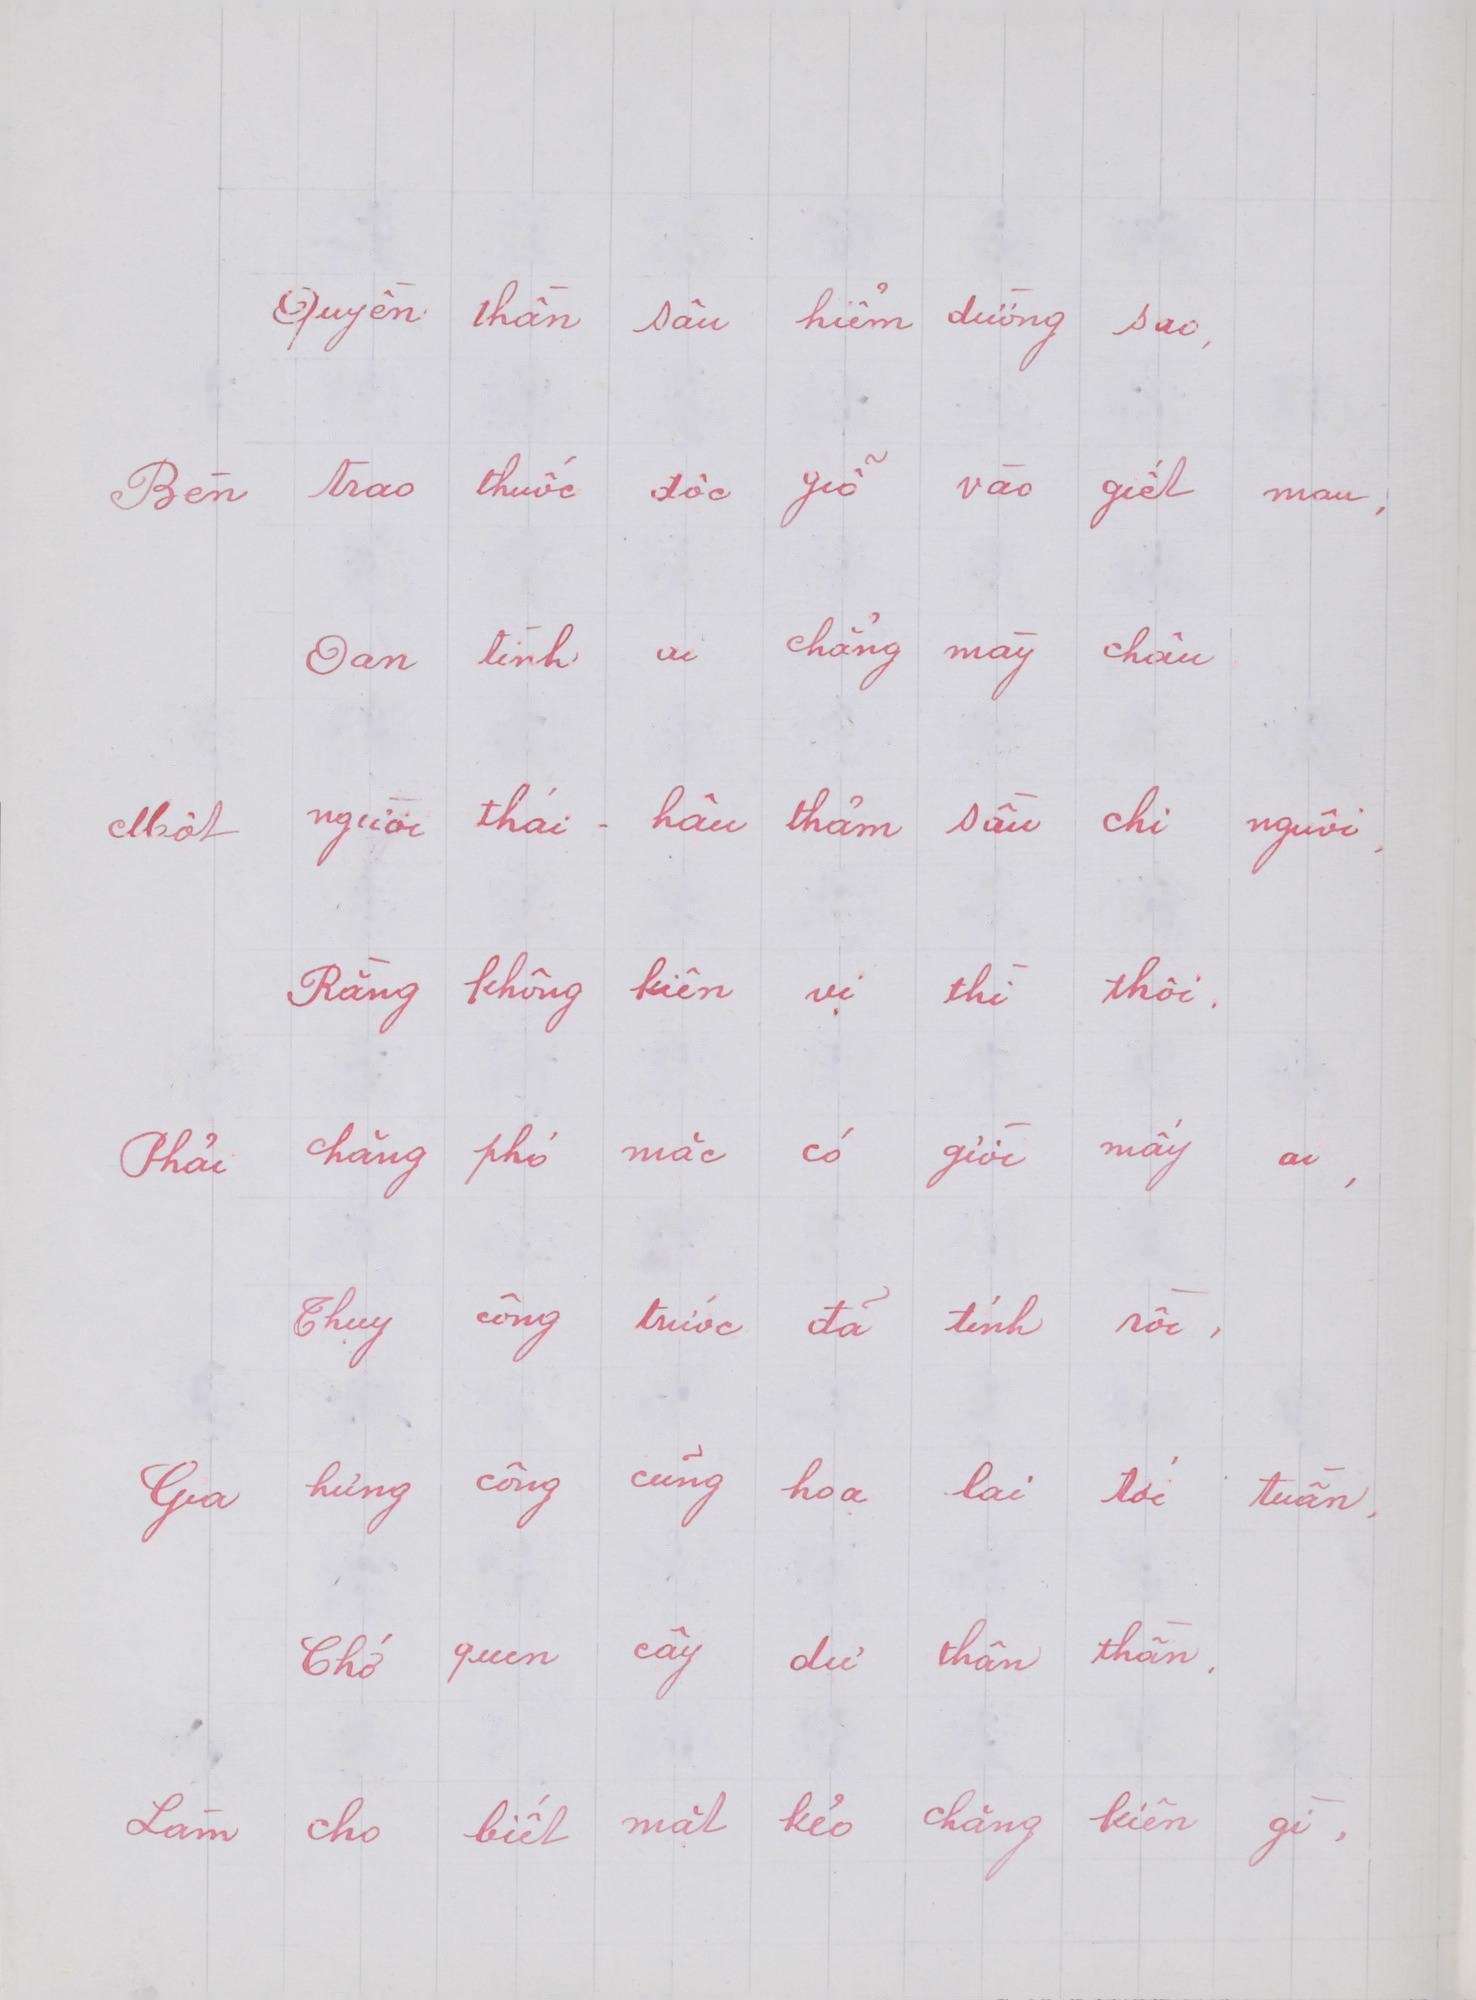 Quyền thần sâu hiểm dường sao,
Bèn trao thuốc độc giỗ vào giết mau,
Oan tình ai chẳng mày châu
Một người thái - hậu thảm sầu chi nguôi,
Rằng không kiên vị thì thôi.
Phải chăng phó mặc có giời mấy ai,
Thụy công trước đã tính rồi,
Gia hưng công cũng họa lai tới tuần,
Chớ quen cậy dự thân thần.
Làm cho biết mặt kẻo chăng kiên gì,